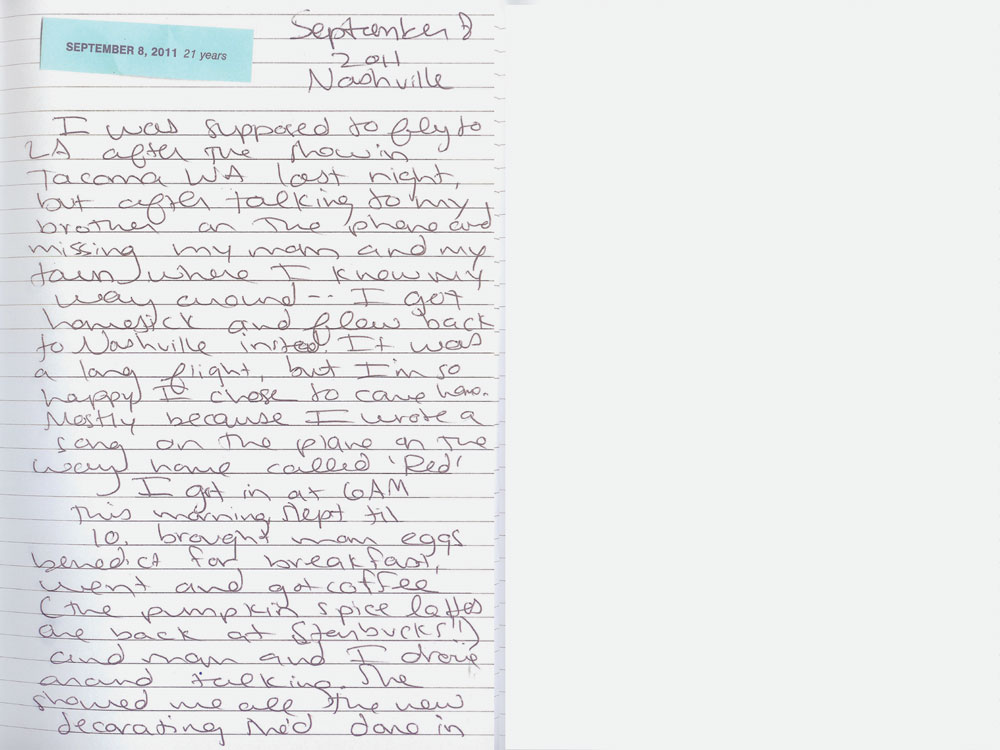 SEPTEMBER 8, 2011 21 years
September 8
2011
Nashville
I was supposed to fly to
LA after the show in
Tacoma WA last night,
but after talking to my
brother on the phone and
missing my mom and my
town where I know my
way around-- I got
homesick and flew back
to Nashville insted. It was
a long flight, but I'm so
happy I chose to come home.
Mostly because I wrote a
song on the plane on the
way home called 'Red'
I got in at 6AM
This morning, slept til
10. brought mom eggs
benedict for breakfast,
went and got coffee
(the pumpkin spice lattes
are back at Starbucks!!)
and mom and I drove
around talking. She
showed me all the new
decorating she'd done in